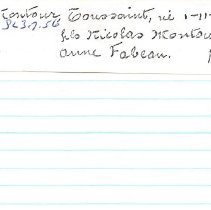 Montour Toussaint, né 1-11
fils Nicolas Montour
Anne Fabeau.